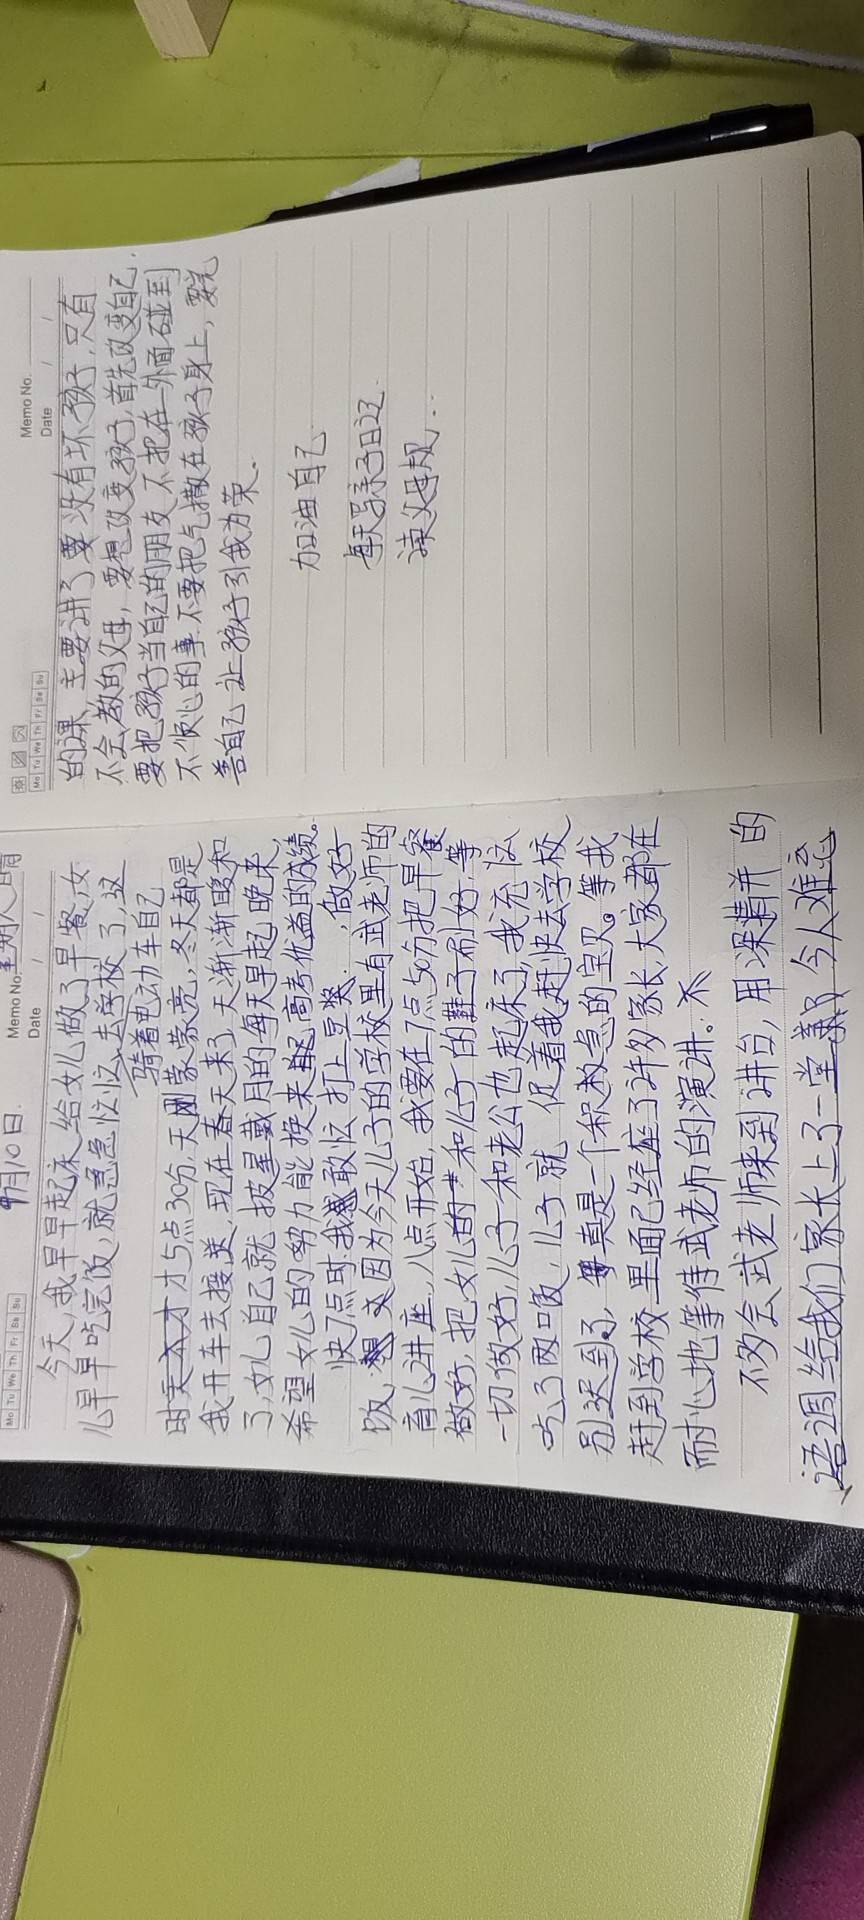 Mo Tu We Th Fr Sa Su
Memo No.
Date / /
月10日
晴
今天,我早早起床,给女儿做了早餐,女
儿早早吃完饭,就急急忙忙去学校了,这
骑着电动车自己
时才5点30分,天刚蒙蒙亮,冬天都是
我开车去接送,现在春天来了,天渐渐暖和
了,女儿自己就披星戴月的每天早起晚来,
希望女儿的努力能换来高考优益的成绩。
快7点时我赶忙打上豆浆,做好
饭,因为今天儿子的学校里有武老师的
育儿讲座,八点开始,我要在7点50分把早餐
做好,把女儿的和儿子的鞋子刷好,等
一切做好,儿子和老公也起床了,我匆忙
吃了两口饭,儿子就促着我赶快去学校
别迟到了,真是一个积极的宝贝。等我
赶到学校里面已经座了许多家长,大家都在
耐心地等待武老师的演讲。不
不多会武老师来到讲台,用深情并的
语调给我们家长上了一堂令人难忘
Mo Tu We Th Fr Sa Su
Memo No.
Date / /
的课,主要讲了要没有坏孩子,只有
不会教的父母,要想改变孩子,首先改变自己.
要把孩子当自己的朋友,不把在外面碰到
不顺心的事不要把气撒在孩子身上,要完
善自己让孩子引我为荣。
加油自己.
每天写亲子日记.
读父母规...